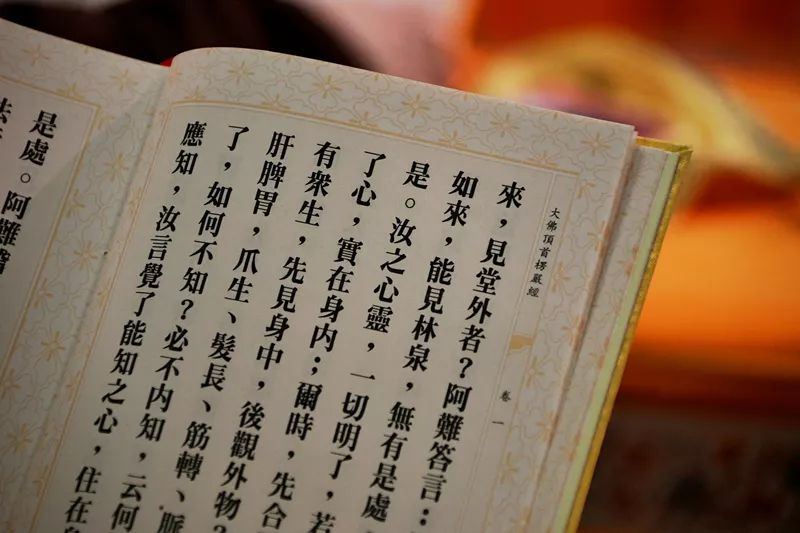 大佛頂首楞嚴經
卷一
來，見堂外者？阿難答言：
如來，能見林泉，無有是處
是。汝之心靈，一切明了，若
了心，實在身內；爾時，先合
有衆生，先見身中，後觀外物？
肝脾胃，爪生、髮長、筋轉、脈
了，如何不知？必不內知，云何
應知，汝言覺了能知之心，住在
是處。阿難稽